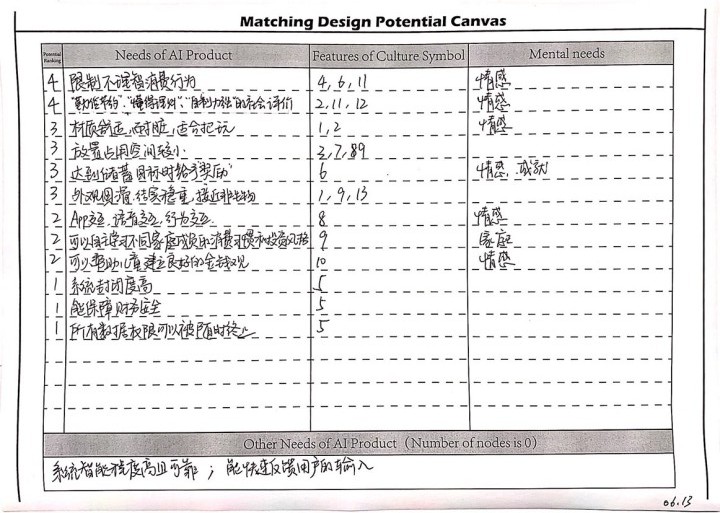 Matching Design Potential Canvas
Potential Ranking Needs of AI Product Features of Culture Symbol Mental needs
4 限制不理智消费行为 4, 6, 11 情感
4 "勤俭节约"、"懂得理财"、"自制力强"的社会评价 2, 11, 12 情感
3 材质舒适,耐脏,适合把玩 1, 2 情感
3 放置占用空间较小 3, 7, 89
3 达到储蓄目标时给予"奖励" 6 情感、成就
3 外观圆滑,结实稳重,接近非生物 1, 9, 13
2 App交互,语音交互,行为交互 8 情感
2 可以自主学习不同家庭成员的消费习惯和投资风格 9 家庭
2 可以帮助儿童建立良好的金钱观 10 情感
1 系统封闭度高 5
1 能保障财务安全 5
1 所有数据权限可以被随时终止 5
Other Needs of AI Product (Number of nodes is 0)
系统智能程度高且可靠; 能快速反馈用户的输入
06.13